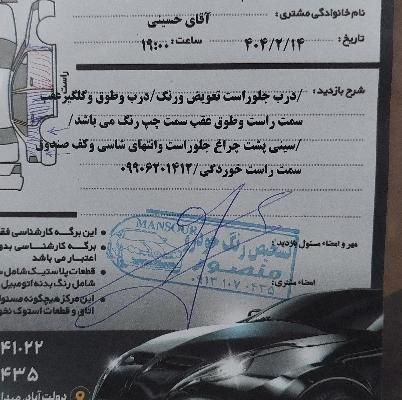 نام خانوادگی مشتری :
آقای حسینی
تاریخ : ۴۰۴/۲/۱۴ ساعت : ۱۹:۰۰
شرح بازدید :
/درب جلوراست تعویض ورنگ/درب وطوق وگلگیرعقب
سمت راست وطوق عقب سمت چپ رنگ می باشد/
/سینی پشت چراغ جلوراست وانتهای شاسی وکف صندوق
سمت راست خوردگی/۰۹۹۰۶۲۰۱۴۱۲
راست
مهر و امضاء مسئول بازدید :
امضاء مشتری :
MANSOUR
تشخیص رنگ خودرو
منصور
۰۹۱۳ ۱۰۷ ۰۴۳۵
این برگه کارشناسی فقط
برگه کارشناسی بدو
اعتبار می باشد
قطعات پلاستیک شامل
شامل رنگ بدنه اتومبیل
این مرکز هیچگونه مسئو
اتاق و قطعات استوک
۴۱۰۲۲
۴۳۵
دولت آباد، میدا